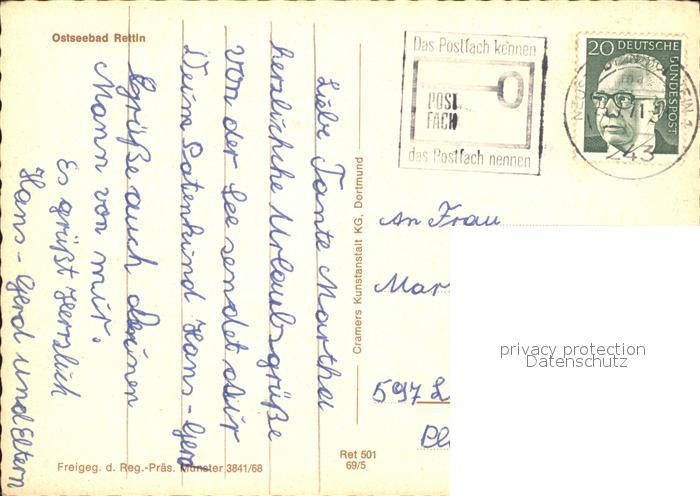 Ostseebad Rettin
Das Postfach kennen
POST
FACH
das Postfach nennen
20 DEUTSCHE
BUNDESPOST
243
Liebe Tante Martha
herzlichste Urlaubsgrüße
von der See sendet dir
Dein Patenkind Hans-Gerd
Grüße auch deinen
Mann von mir.
Es grüßt Herzlich
Hans-Gerd und Eltern
Cramers Kunstanstalt KG, Dortmund
An Frau
Mar
597 L
Pl
privacy protection
Datenschutz
Freigeg. d. Reg.-Präs. Münster 3841/68
Ret 501
69/5